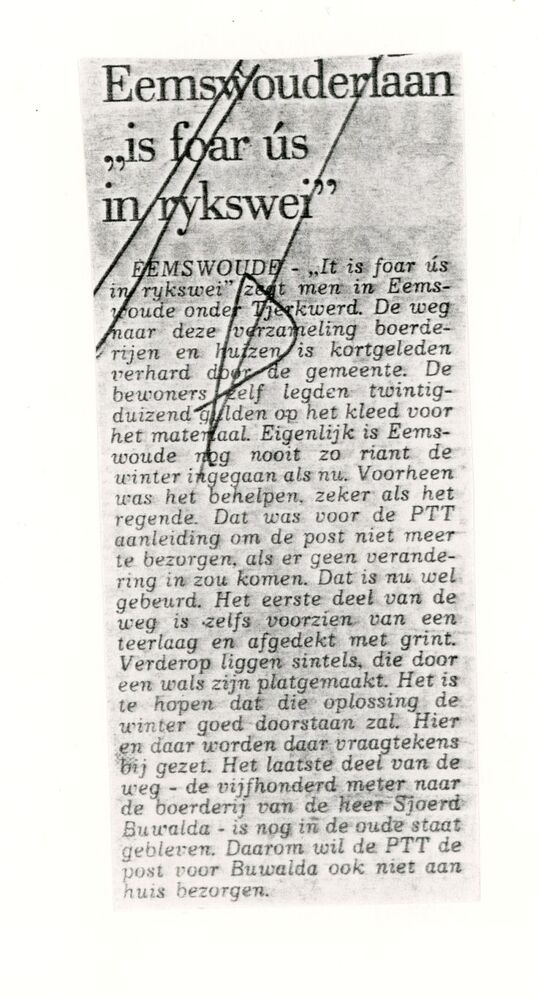 Eemswouderlaan
„is foar ús
in rykswei”
EEMSWOUDE - „It is foar ús
in rykswei” zegt men in Eems-
woude onder Tjerkwerd. De weg
naar deze verzameling boerde-
rijen en huizen is kortgeleden
verhard door de gemeente. De
bewoners zelf legden twintig-
duizend gulden op het kleed voor
het materiaal. Eigenlijk is Eems-
woude nog nooit zo riant de
winter ingegaan als nu. Voorheen
was het behelpen, zeker als het
regende. Dat was voor de PTT
aanleiding om de post niet meer
te bezorgen, als er geen verande-
ring in zou komen. Dat is nu wel
gebeurd. Het eerste deel van de
weg is zelfs voorzien van een
teerlaag en afgedekt met grint.
Verderop liggen sintels, die door
een wals zijn platgemaakt. Het is
te hopen dat die oplossing de
winter goed doorstaan zal. Hier
en daar worden daar vraagtekens
bij gezet. Het laatste deel van de
weg - de vijfhonderd meter naar
de boerderij van de heer Sjoerd
Buwalda - is nog in de oude staat
gebleven. Daarom wil de PTT de
post voor Buwalda ook niet aan
huis bezorgen.